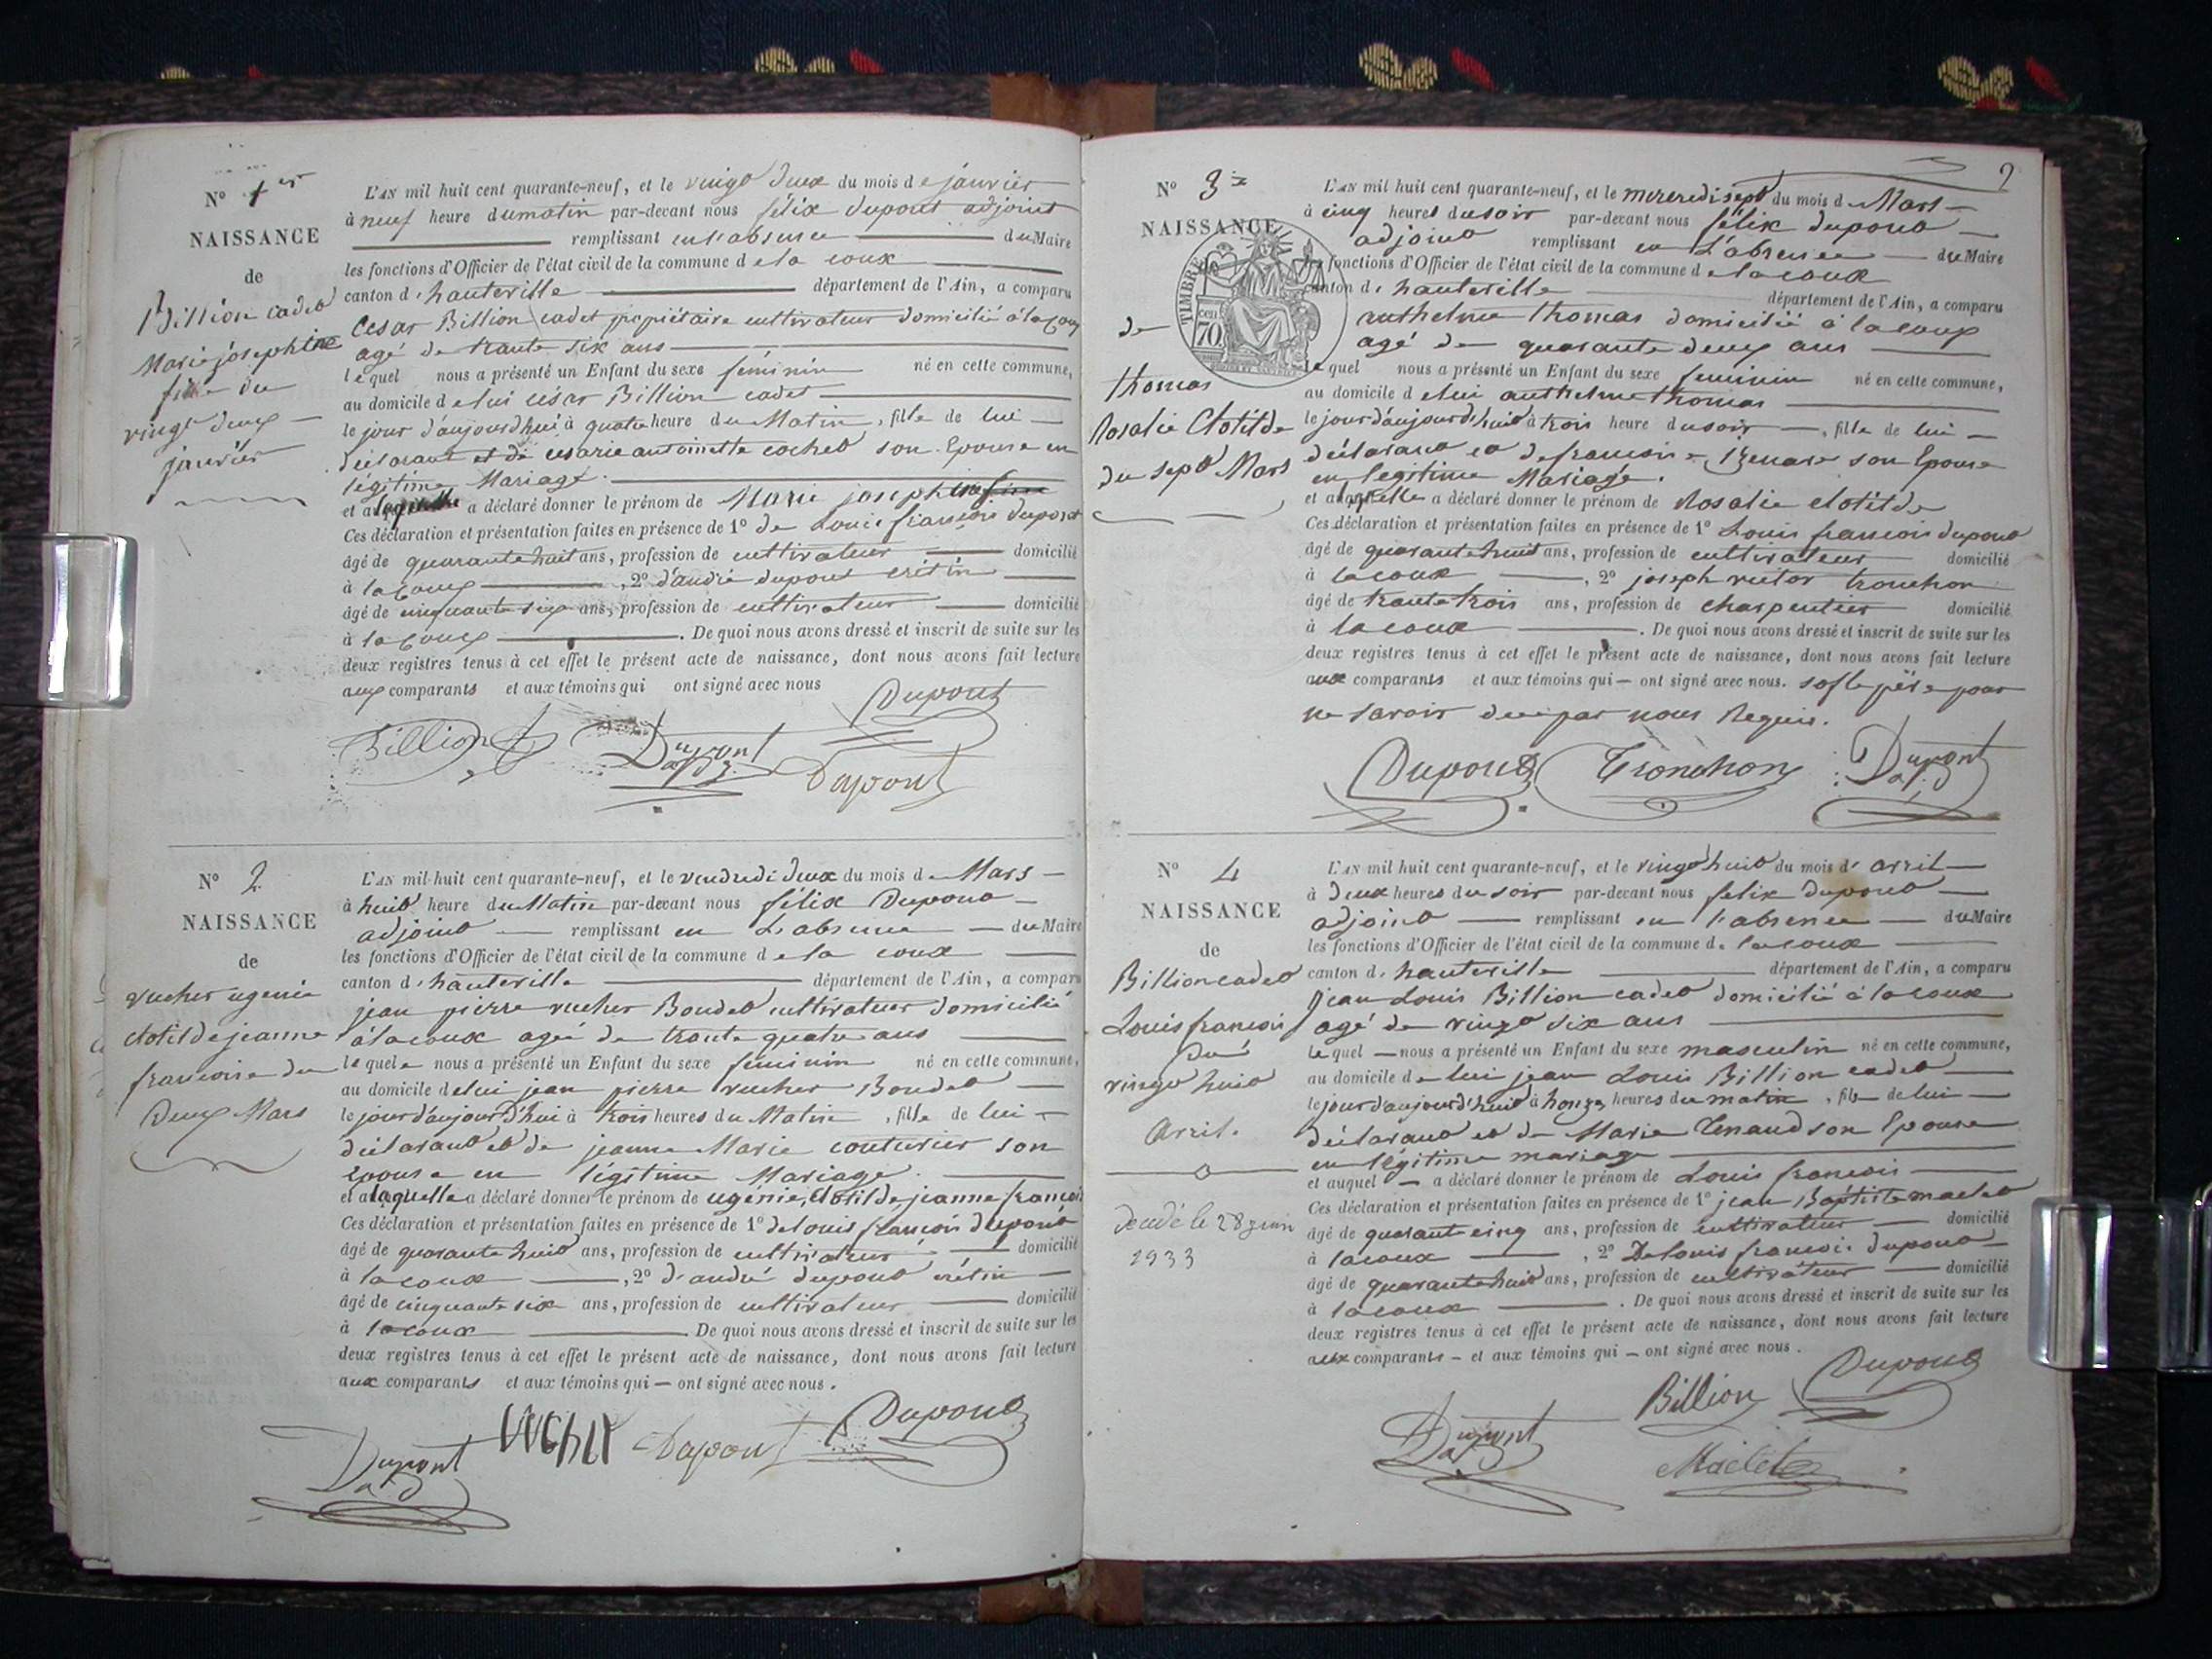 N° 1er
NAISSANCE
de
Billion cadet
Marie josephine
fille du
vingt deux
janvier
L'AN mil huit cent quarante-neuf, et le vingt deux du mois de janvier
à neuf heure du matin par-devant nous félix dupont adjoint
remplissant en l'absence du Maire
les fonctions d'Officier de l'état civil de la commune de la coux
canton d'hauteville département de l'Ain, a comparu
César Billion cadet propiétaire cultivateur domicilié à la coux
agé de trante six ans
lequel nous a présenté un Enfant du sexe féminin né en cette commune,
au domicile de lui césar Billion cadet
le jour d'aujourd'hui à quatre heure du Matin, fille de lui
déclarant et de césarie antoinette cochet son Epouse en
légitime Mariage.
et a laquelle a déclaré donner le prénom de Marie josephine
Ces déclaration et présentation faites en présence de 1° de Louis françois dupont
âgé de quarante huit ans, profession de cultivateur domicilié
à la coux, 2° d'andré dupont crétin
âgé de cinquante six ans, profession de cultivateur domicilié
à la coux. De quoi nous avons dressé et inscrit de suite sur les
deux registres tenus à cet effet le présent acte de naissance, dont nous avons fait lecture
aux comparants et aux témoins qui ont signé avec nous
Dupont
Billion Dupont Dupont
N° 2
NAISSANCE
de
vucher ugenie
clotilde jeanne
francoise du
Deux Mars
L'AN mil huit cent quarante-neuf, et le vendredi deux du mois de Mars
à huit heure du Matin par-devant nous félix Dupont
adjoint remplissant en L'absence du Maire
les fonctions d'Officier de l'état civil de la commune de la coux
canton d'hauteville département de l'Ain, a comparu
jean pierre vucher Boudet cultivateur domicilié
à lacoux agée de trante quatre ans
le quel e nous a présenté un Enfant du sexe féminin né en cette commune,
au domicile de lui jean pierre vucher Boudet
le jour d'aujourd'hui à trois heures du Matin, fille de lui
déclarant et de jeanne Marie couturier son
Epouse en légitime Mariage.
et a laquelle a déclaré donner le prénom de ugénie, Clotilde, jeanne francoise
Ces déclaration et présentation faites en présence de 1° de louis françois dupont
âgé de quarante huit ans, profession de cultivateur domicilié
à lacoux, 2° d'andré dupont crétin
âgé de cinquante six ans, profession de cultivateur domicilié
à lacoux. De quoi nous avons dressé et inscrit de suite sur les
deux registres tenus à cet effet le présent acte de naissance, dont nous avons fait lecture
aux comparants et aux témoins qui — ont signé avec nous.
Dupont Dupont Dupont
2
N° 3
NAISSANCE
TIMBRE
cen 70
de
thomas
Rosalie Clotilde
du sept Mars
L'AN mil huit cent quarante-neuf, et le mercredi sept du mois de Mars
à cinq heures du soir par-devant nous félix dupont
adjoint remplissant en L'absence du Maire
les fonctions d'Officier de l'état civil de la commune de lacoux
canton d'hauteville département de l'Ain, a comparu
anthelme thomas domicilié à lacoux
agé de quarante deux ans
lequel nous a présenté un Enfant du sexe féminin né en cette commune,
au domicile de lui anthelme thomas
le jour d'aujourd'huit à trois heure du soir, fille de lui
déclarant et de francoise son Epouse
en legitime Mariage.
et a laquelle a déclaré donner le prénom de Rosalie clotilde
Ces déclaration et présentation faites en présence de 1° Louis francois dupont
âgé de quarante huit ans, profession de cultivateur domicilié
à lacoux, 2° joseph victor tronchon
âgé de trante trois ans, profession de charpentier domicilié
à lacoux. De quoi nous avons dressé et inscrit de suite sur les
deux registres tenus à cet effet le présent acte de naissance, dont nous avons fait lecture
aux comparants et aux témoins qui — ont signé avec nous. sof le père pour
ne savoir de par nous Requis.
Dupont Tronchon Dupont
N° 4
NAISSANCE
de
Billion cadet
Louis francois
Du
vingt huit
avril.
décédé le 28 juin
1933
L'AN mil huit cent quarante-neuf, et le vingt huit du mois d'avril
à deux heures du soir par-devant nous félix Dupont
adjoint remplissant en l'absence du Maire
les fonctions d'Officier de l'état civil de la commune de lacoux
canton d'hauteville département de l'Ain, a comparu
jean Louis Billion cadet domicilié à lacoux
agé de vingt six ans
le quel — nous a présenté un Enfant du sexe masculin né en cette commune,
au domicile de lui jean Louis Billion cadet
le jour d'aujourd'huit à honze heures du matin, fils de lui
déclarant et de Marie Tenand son Epouse
en légitime mariage
et auquel — a déclaré donner le prénom de Louis francois
Ces déclaration et présentation faites en présence de 1° jean Baptiste maclet
âgé de quarant cinq ans, profession de cultivateur domicilié
à lacoux, 2° De louis francois dupont
âgé de quarante huit ans, profession de cultivateur domicilié
à lacoux. De quoi nous avons dressé et inscrit de suite sur les
deux registres tenus à cet effet le présent acte de naissance, dont nous avons fait lecture
aux comparants — et aux témoins qui — ont signé avec nous.
Dupont Billion Dupont
Maclet